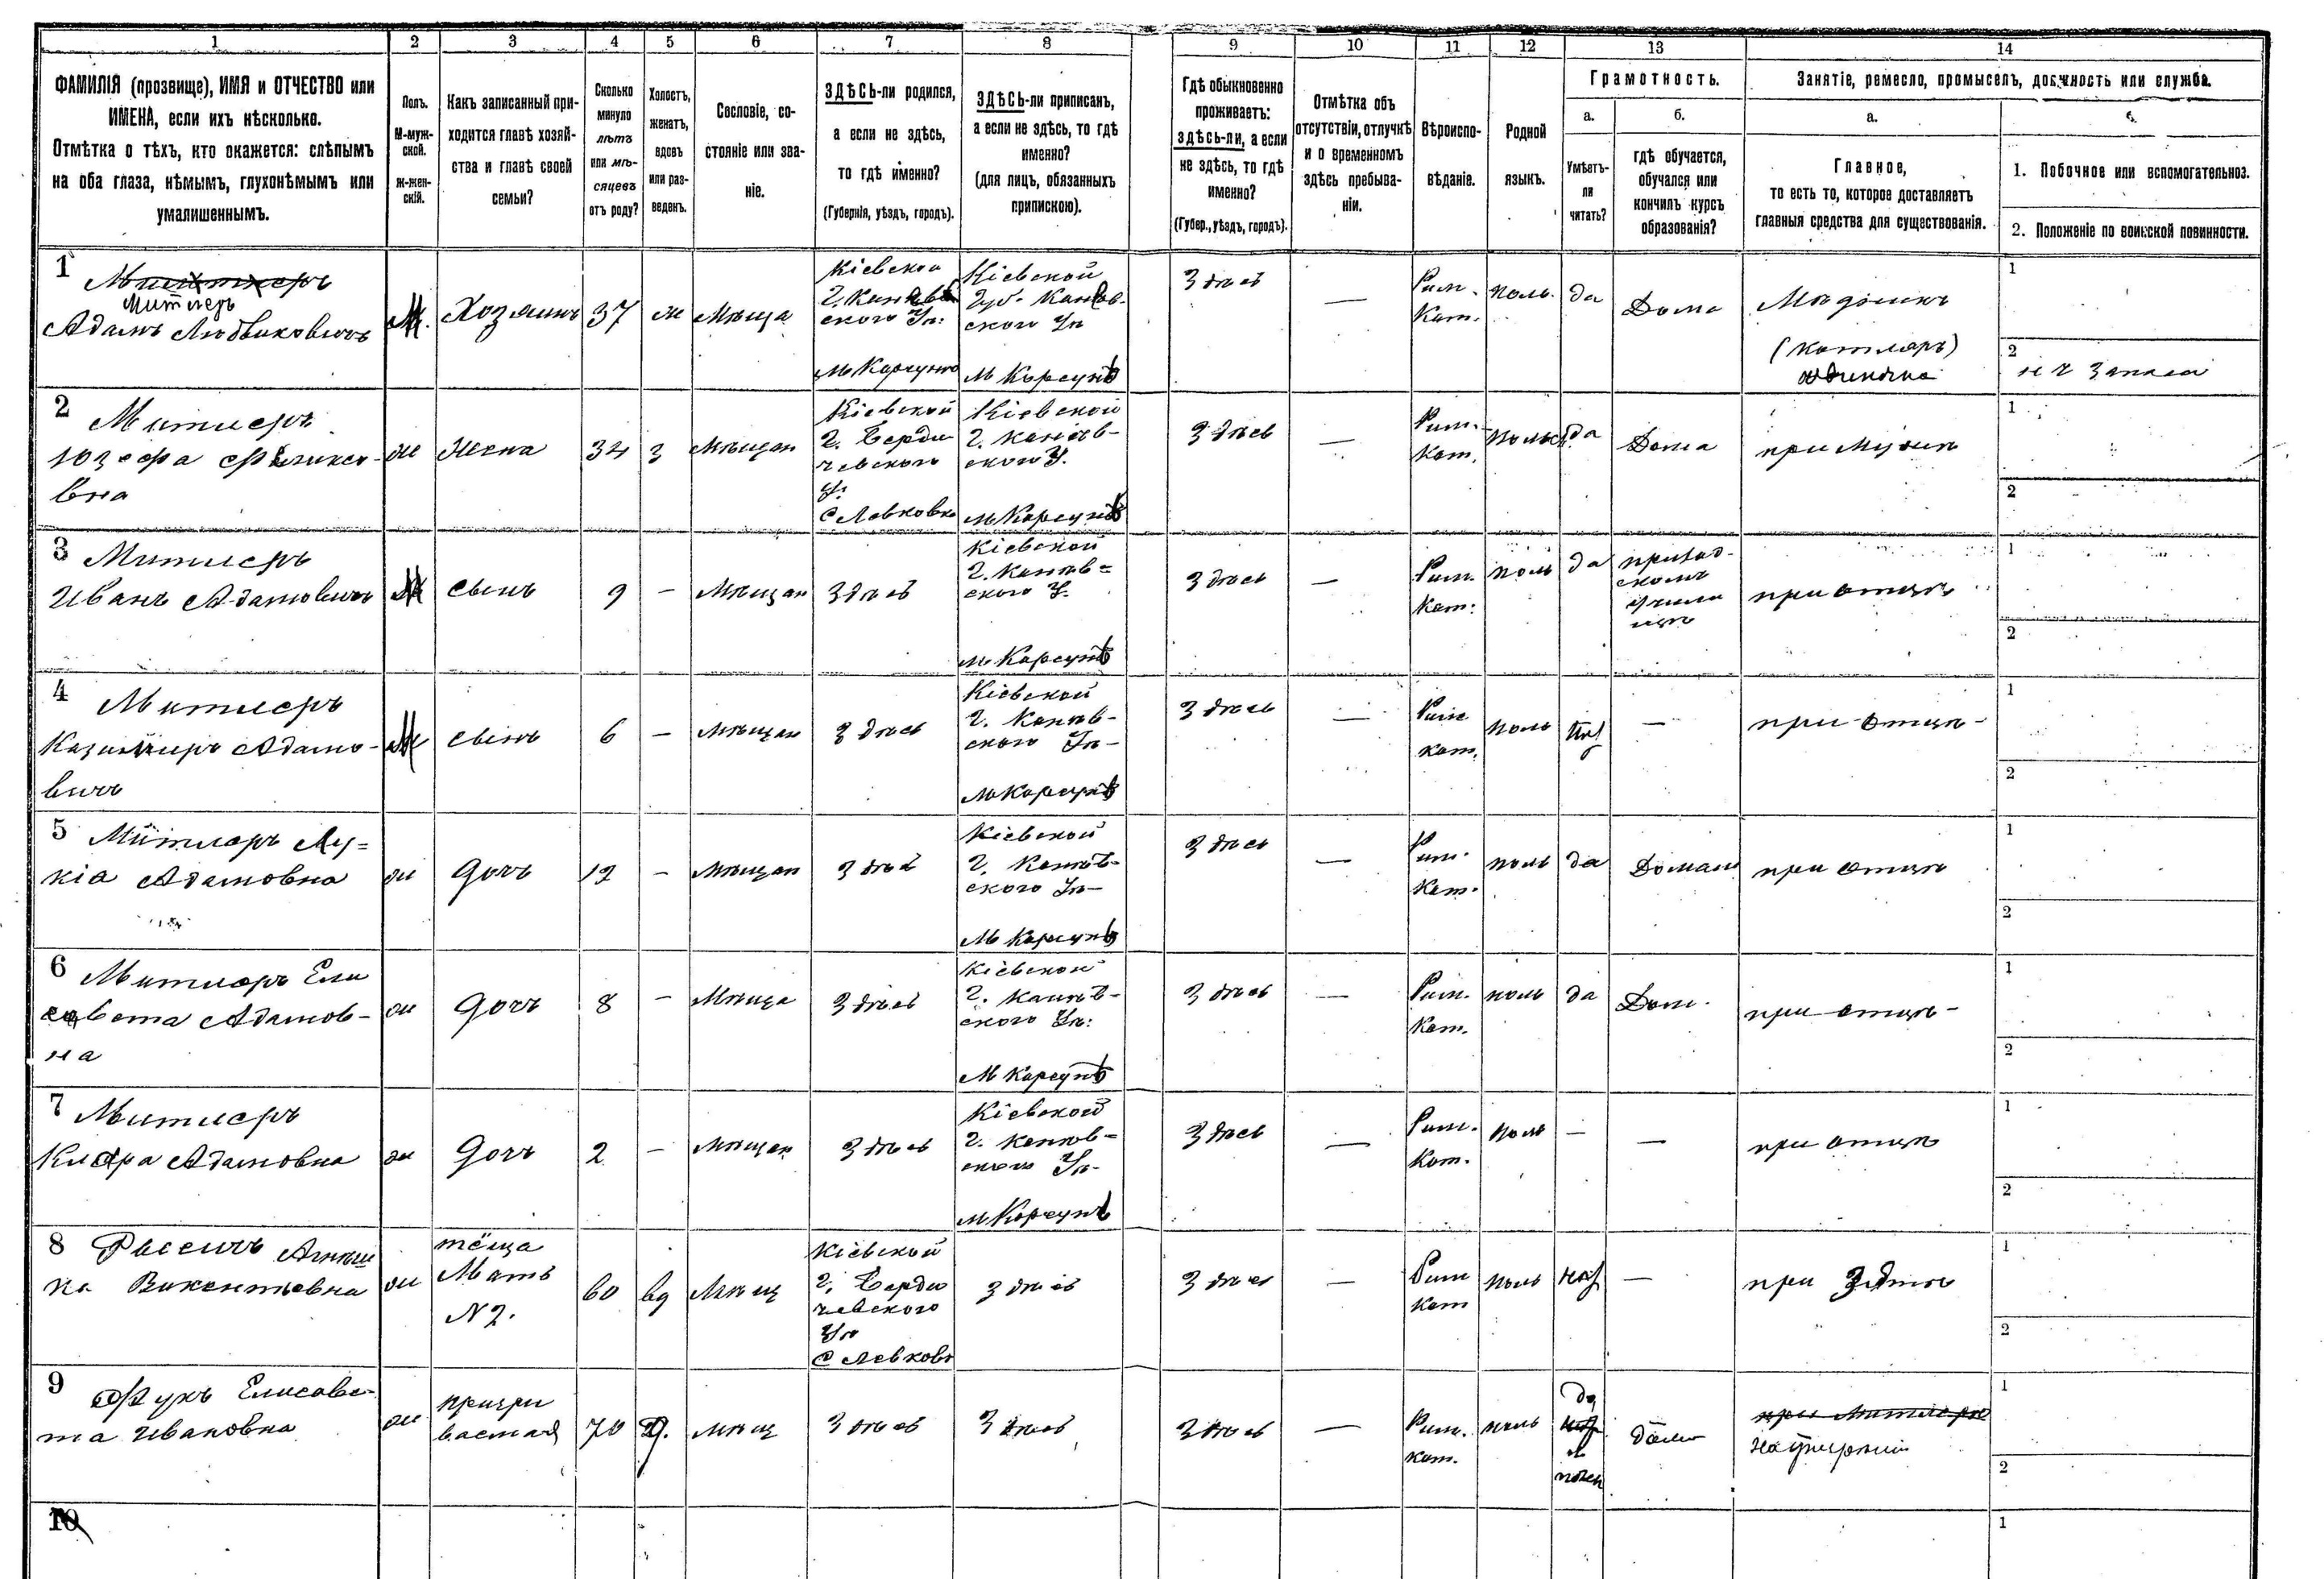 1 2 3 4 5 6 7 8 9 10 11 12 13 14
ФАМИЛІЯ (прозвище), ИМЯ и ОТЧЕСТВО или
ИМЕНА, если ихъ нѣсколько.
Отмѣтка о тѣхъ, кто окажется: слѣпымъ
на оба глаза, нѣмымъ, глухонѣмымъ или
умалишеннымъ.
Полъ.
М-муж-
ской.
Ж-жен-
скій.
Какъ записанный при-
ходится главѣ хозяй-
ства и главѣ своей
семьи?
Сколько
минуло
лѣтъ
или мѣ-
сяцевъ
отъ роду?
Холостъ,
женатъ,
вдовъ
или раз-
веденъ.
Сословіе, со-
стояніе или зва-
ніе.
ЗДѢСЬ-ли родился,
а если не здѣсь,
то гдѣ именно?
(Губернія, уѣздъ, городъ).
ЗДѢСЬ-ли приписанъ,
а если не здѣсь, то гдѣ
именно?
(для лицъ, обязанныхъ
припискою).
Гдѣ обыкновенно
проживаетъ:
ЗДѢСЬ-ли, а если
не здѣсь, то гдѣ
именно?
(Губер., уѣздъ, городъ).
Отмѣтка объ
отсутствіи, отлучкѣ
и о временномъ
здѣсь пребыва-
ніи.
Вѣроиспо-
вѣданіе.
Родной
языкъ.
Грамотность.
а.
Умѣетъ-
ли
читать?
б.
гдѣ обучается,
обучался или
кончилъ курсъ
образованія?
Занятіе, ремесло, промыселъ, должность или служба.
а.
Главное,
то есть то, которое доставляетъ
главныя средства для существованія.
1. Побочное или вспомогательное.
2. Положеніе по воинской повинности.
1
Митлеръ
Адамъ Людвиковичъ
М. Хозяинъ 37 ж Мѣща
Кіевской
Г. Каневв
ского Уѣ:
м Корсунѣ
Кіевской
Губ. Канев-
ского Уѣ
м Корсунѣ
Здѣсь
—
Рим.
Кат.
поль. да Дома
Мѣдникъ
(котляръ)
одиночка
1
2
н ч запаса
2 Митлеръ
Юзефа Феликсо-
вна
ж Жена 34 з Мѣщан
Кіевской
Г. Берди
чевского
У.
С Левковка
Кіевской
Г. Канѣв-
ского У.
м Корсунѣ
Здѣсь
—
Рим.
Кат.
польс да Дома при мужѣ
1
2
3 Митлеръ
Иванъ Адамовичъ
М сынъ 9 — Мѣщан Здѣсь
Кіевской
Г. Канѣв=
ского У.
м Корсунѣ
Здѣсь
—
Рим.
Кат.
поль да
училищѣ
при отцѣ
1
2
4 Митлеръ
Казимиръ Адамо-
вичъ
М сынъ 6 — мѣщан Здѣсь
Кіевской
Г. Канѣв-
ского Уѣ-
м Корсунѣ
Здѣсь
—
Рим
кат.
поль нѣт —
при отцѣ-
1
2
5 Митлеръ Лу=
кіа Адамовна
ж дочь 12 — мѣщан Здѣсь
Кіевской
Г. Канѣв-
ского Уѣ-
м Корсунѣ
Здѣсь
—
Рим.
Кат.
поль да Дома при отцѣ
1
2
6 Митлеръ Ели
савета Адамов-
на
ж дочь 8 — Мѣща Здѣсь
Кіевской
Г. Канѣв-
ского Уѣ:
м Корсунѣ
Здѣсь
—
Рим.
Кат.
поль да Дом. при отцѣ-
1
2
7 Митлеръ
Клара Адамовна
ж дочь 2 — мѣщан Здѣсь
Кіевской
Г. Канѣв=
ского Уѣ-
м Корсунѣ
Здѣсь
—
Рим.
Кат.
поль — — при отцѣ
1
2
8 Агнѣш
ка Викентьевна
ж
тёща
Мать
N 2.
60 вд Мѣщ
Кіевской
Г. Берди
чевского
Уѣ
С Левковк
Здѣсь
Здѣсь
—
Рим
кат
поль нѣт — при зятѣ
1
2
9 Фукъ Елисаве-
та Ивановна
ж
призрѣ
ваемая
70 Д. мѣщ Здѣсь Здѣсь
Здѣсь
—
Рим.
кат.
поль
да
Дома
при Митлерѣ
1
2
10
1